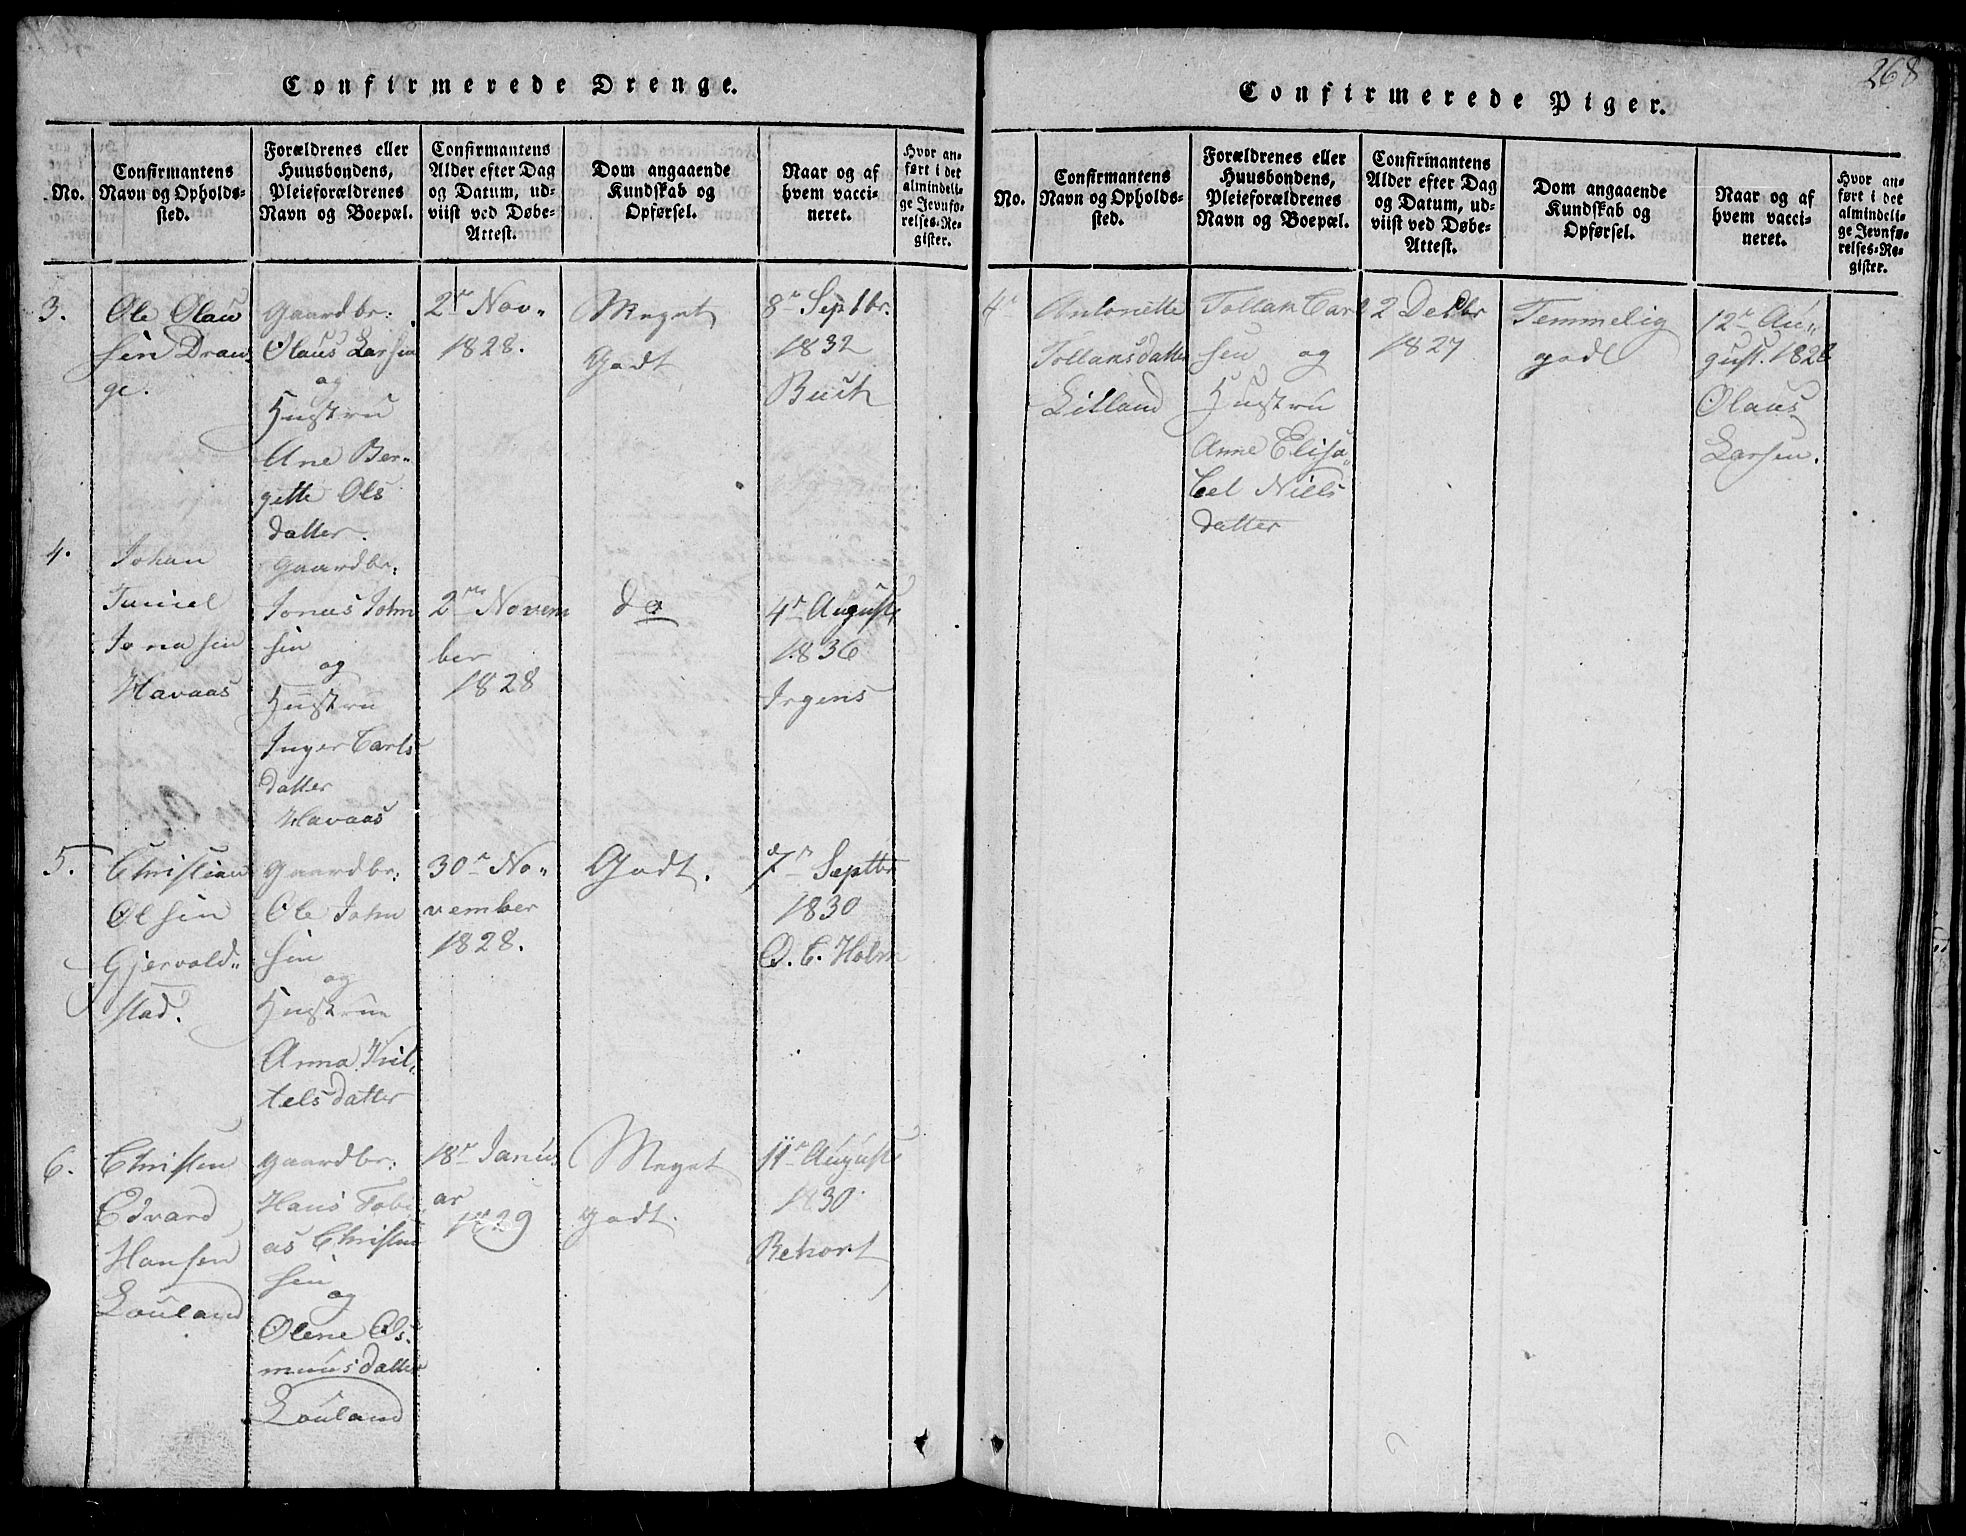 Confirmerede Drenge.
No.
Confirmantens
Navn og Opholds-
sted.
Forældrenes eller
Huusbondens,
Pleieforældrenes
Navn og Boepæl.
Confirmantens
Alder efter Dag
og Datum, ud-
viist ved Døbe-
Attest.
Dom angaaende
Kundskab og
Opførsel.
Naar og af
hvem vacci-
neret.
Hvor an-
ført i det
almindeli-
ge Jevnfø-
relses-Re-
gister.
3.
Ole Olau
sen Dran
ge.
Gaardbr:
Olaus Larsen
og
Hustru
Ane Ber-
gette Ols
datter.
2den Nov-
1828.
Meget
Godt
8de Septbr.
1832
Buch
4.
Johan
Jonasen
Havaas
Gaardbr:
Jonas John
sen
og
Hustru
Inger Carls
datter
Havaas
2den Novem
ber
1828
do
4de August
1836
Irgens
5.
Christian
Olsen
Gjervold-
stad.
Gaardbr:
Ole John
sen
og
Hustrue
Anna Kit-
telsdatter
30te No-
vember
1828.
Godt.
7de Septbr
1830
O. C. Holm
6.
Christen
Edvard
Hansen
Louland
Gaardbr:
Hans Tobi
as Christen
sen
og
Olene Os-
munsdatter
Louland
18de Janu
ar
1829
Meget
godt.
11te August
1830
Rehort
268
Confirmerede Piger.
No.
Confirmantens
Navn og Opholds-
sted.
Forældrenes eller
Huusbondens,
Pleieforældrenes
Navn og Boepæl.
Confirmantens
Alder efter Dag
og Datum, ud-
viist ved Døbe-
Attest.
Dom angaaende
Kundskab og
Opførsel.
Naar og af
hvem vacci-
neret.
Hvor an-
ført i det
almindeli-
ge Jevnfø-
relses-Re-
gister.
4
Antonette
Tollansdatter
Litland
Tollak Carl
sen og
Hustru
Anne Elisa-
bet Niels
datter
2 Decbr
1827
Temmelig
godt
12te Au-
gust. 1828
Olaus
Larsen.